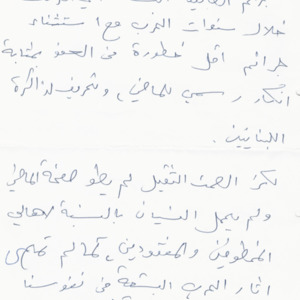 خلال سنوات الحرب مع استثناء
جرائم أقل خطورة من العفو بمثابة
انكار رسمي للماضي، وتحريف لذاكرة
اللبنانيين.
لكن الصمت الثقيل لم يطو صفحة الماضي
ولم يحمل النسيان بالنسبة لأهالي
المخطوفين والمفقودين، كما لم تمحى
اثار الحرب البشعة من نفوسنا